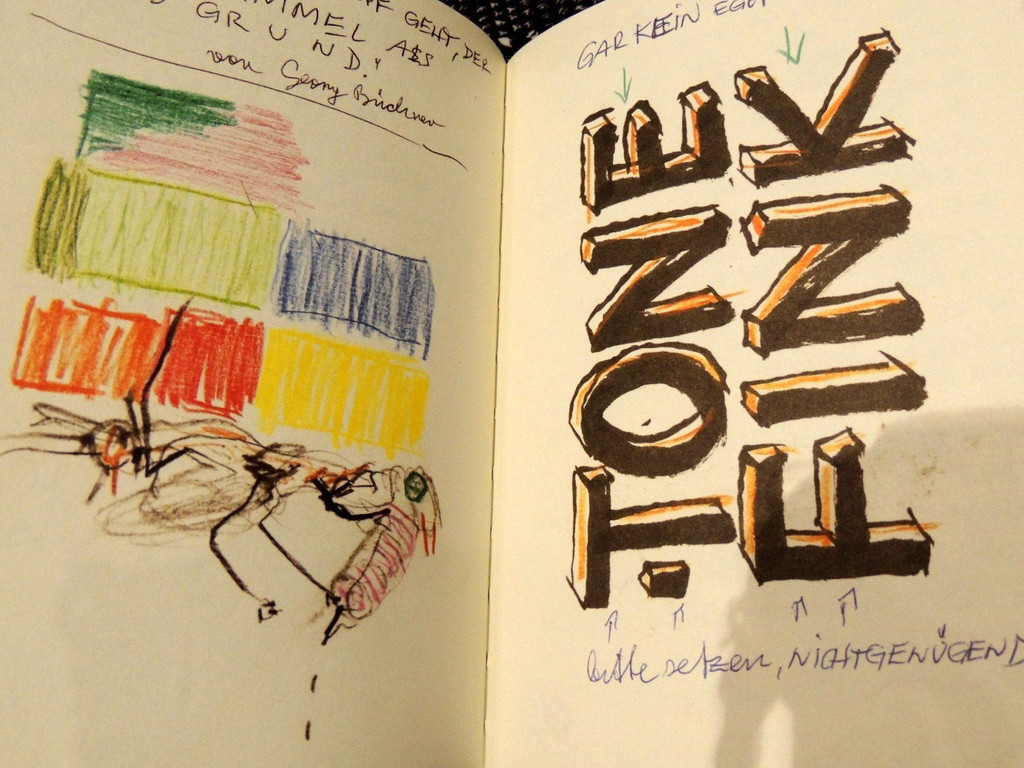 GEHT, DER
HIMMEL ALS
GRUND."
von Georg Büchner
GAR KEIN EGO
TONE
FINK
bitte setzen, NICHTGENÜGEND